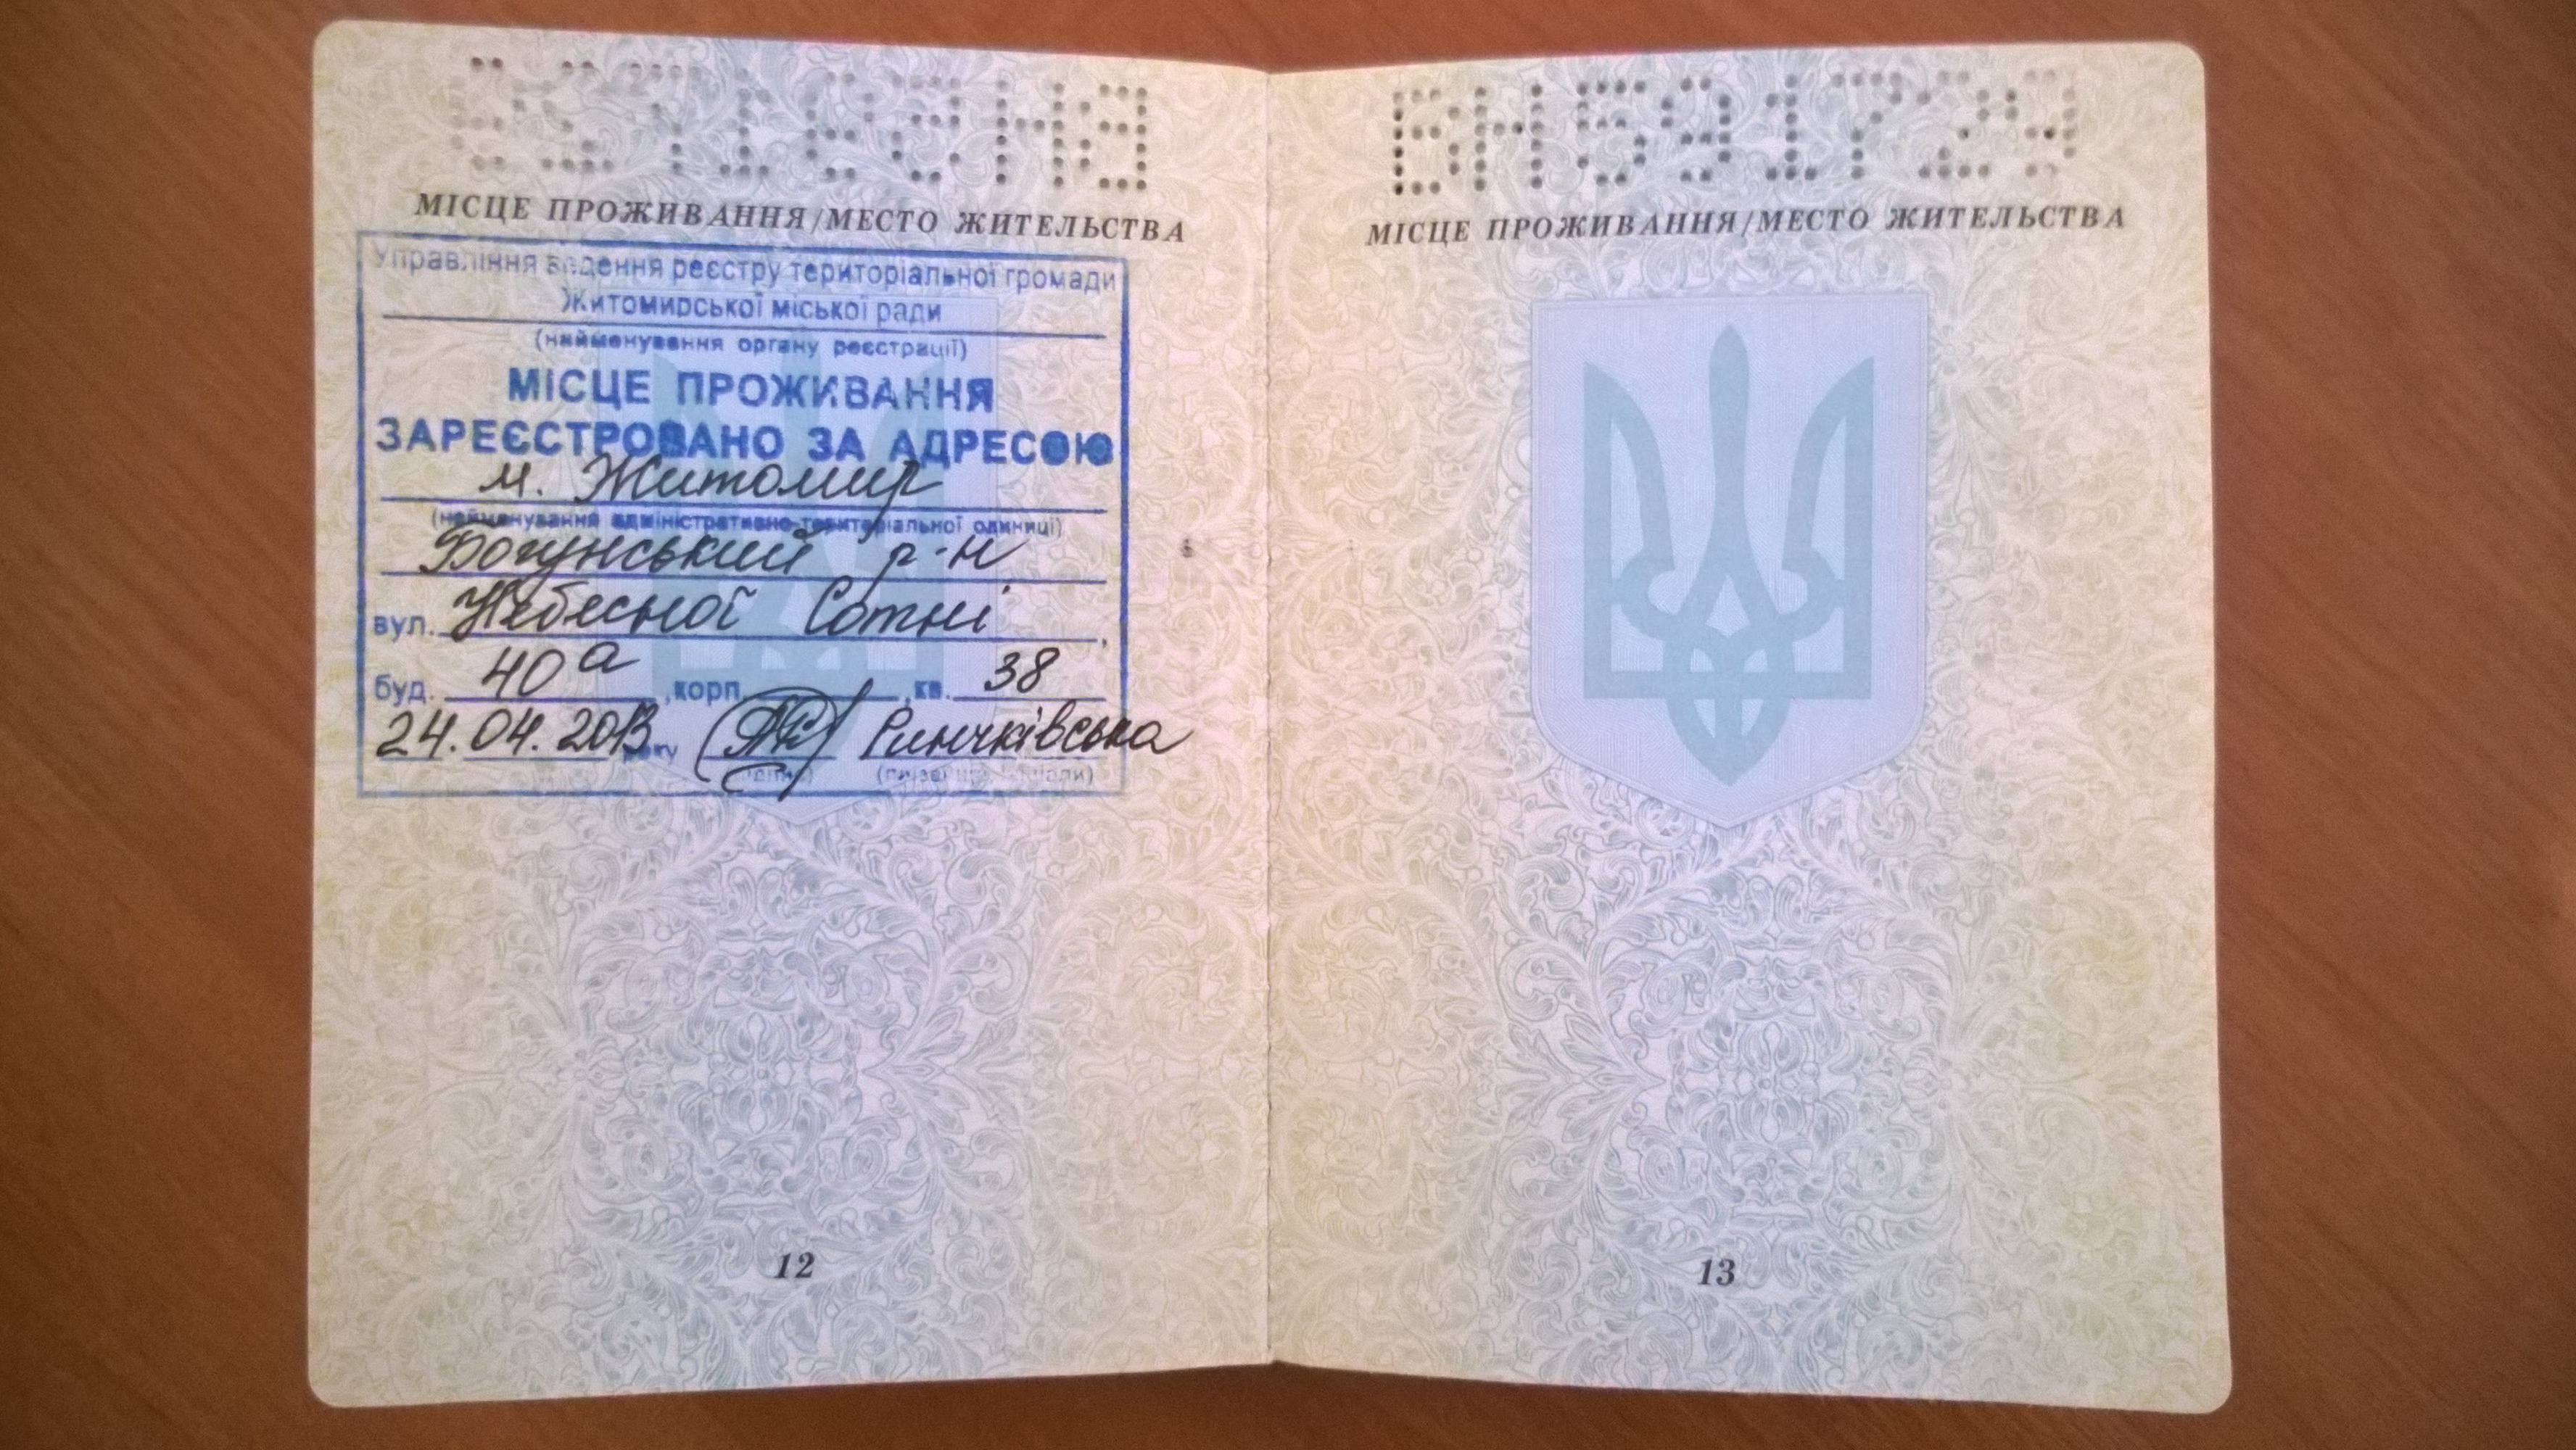 МІСЦЕ ПРОЖИВАННЯ/МЕСТО ЖИТЕЛЬСТВА
Управління ведення реєстру територіальної громади
Житомирської міської ради
(найменування органу реєстрації)
МІСЦЕ ПРОЖИВАННЯ
ЗАРЕЄСТРОВАНО ЗА АДРЕСОЮ
м. Житомир
(найменування адміністративно-територіальної одиниці)
Богунський р-н
вул. Небесної Сотні,
буд. 40а, корп. , кв. 38
24.04.2013 року
(підпис) (прізвище, ініціали)
12
БН591729
МІСЦЕ ПРОЖИВАННЯ/МЕСТО ЖИТЕЛЬСТВА
13